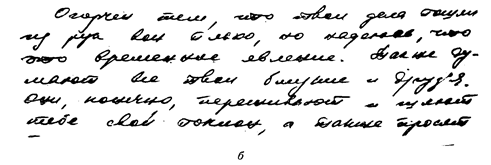 Огорчён тем, что твои дела пошли
из рук вон плохо, но надеюсь, что
это временное явление. Также ду-
мают все твои близкие и друзья.
Они, конечно, переживают и шлют
тебе свой поклон, а также просят
6